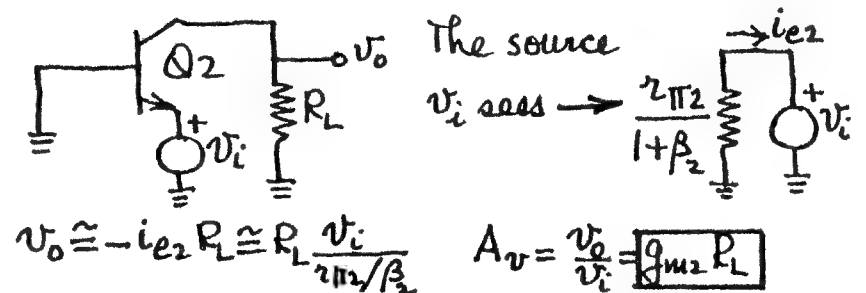 Q2
v₀
R_L
v_i
+
The source
v_i sees → r_π2 / (1+β₂)
i_e2
+
v_i
v₀ ≅ -i_e2 R_L ≅ R_L v_i / (r_π2/β₂)
A_v = v₀/v_i = g_m2 R_L